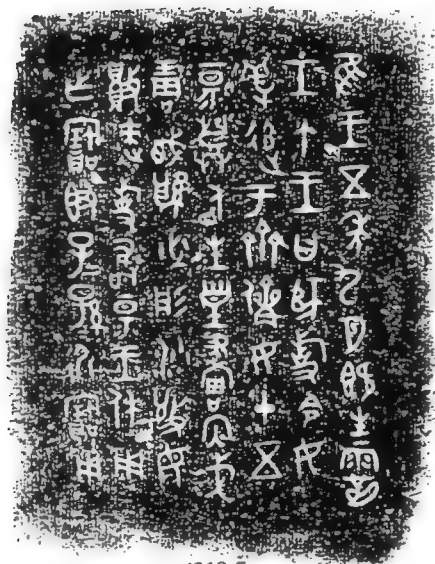 隹王五年九月既生霸
壬午王曰師旋令女
羞追于齊儕女毌五
昜登盾生皇畫內戈
琱㦰厚必彤沙敬毋
敗速旋敢昜王休用
乍寶𣪘子孫永寶用